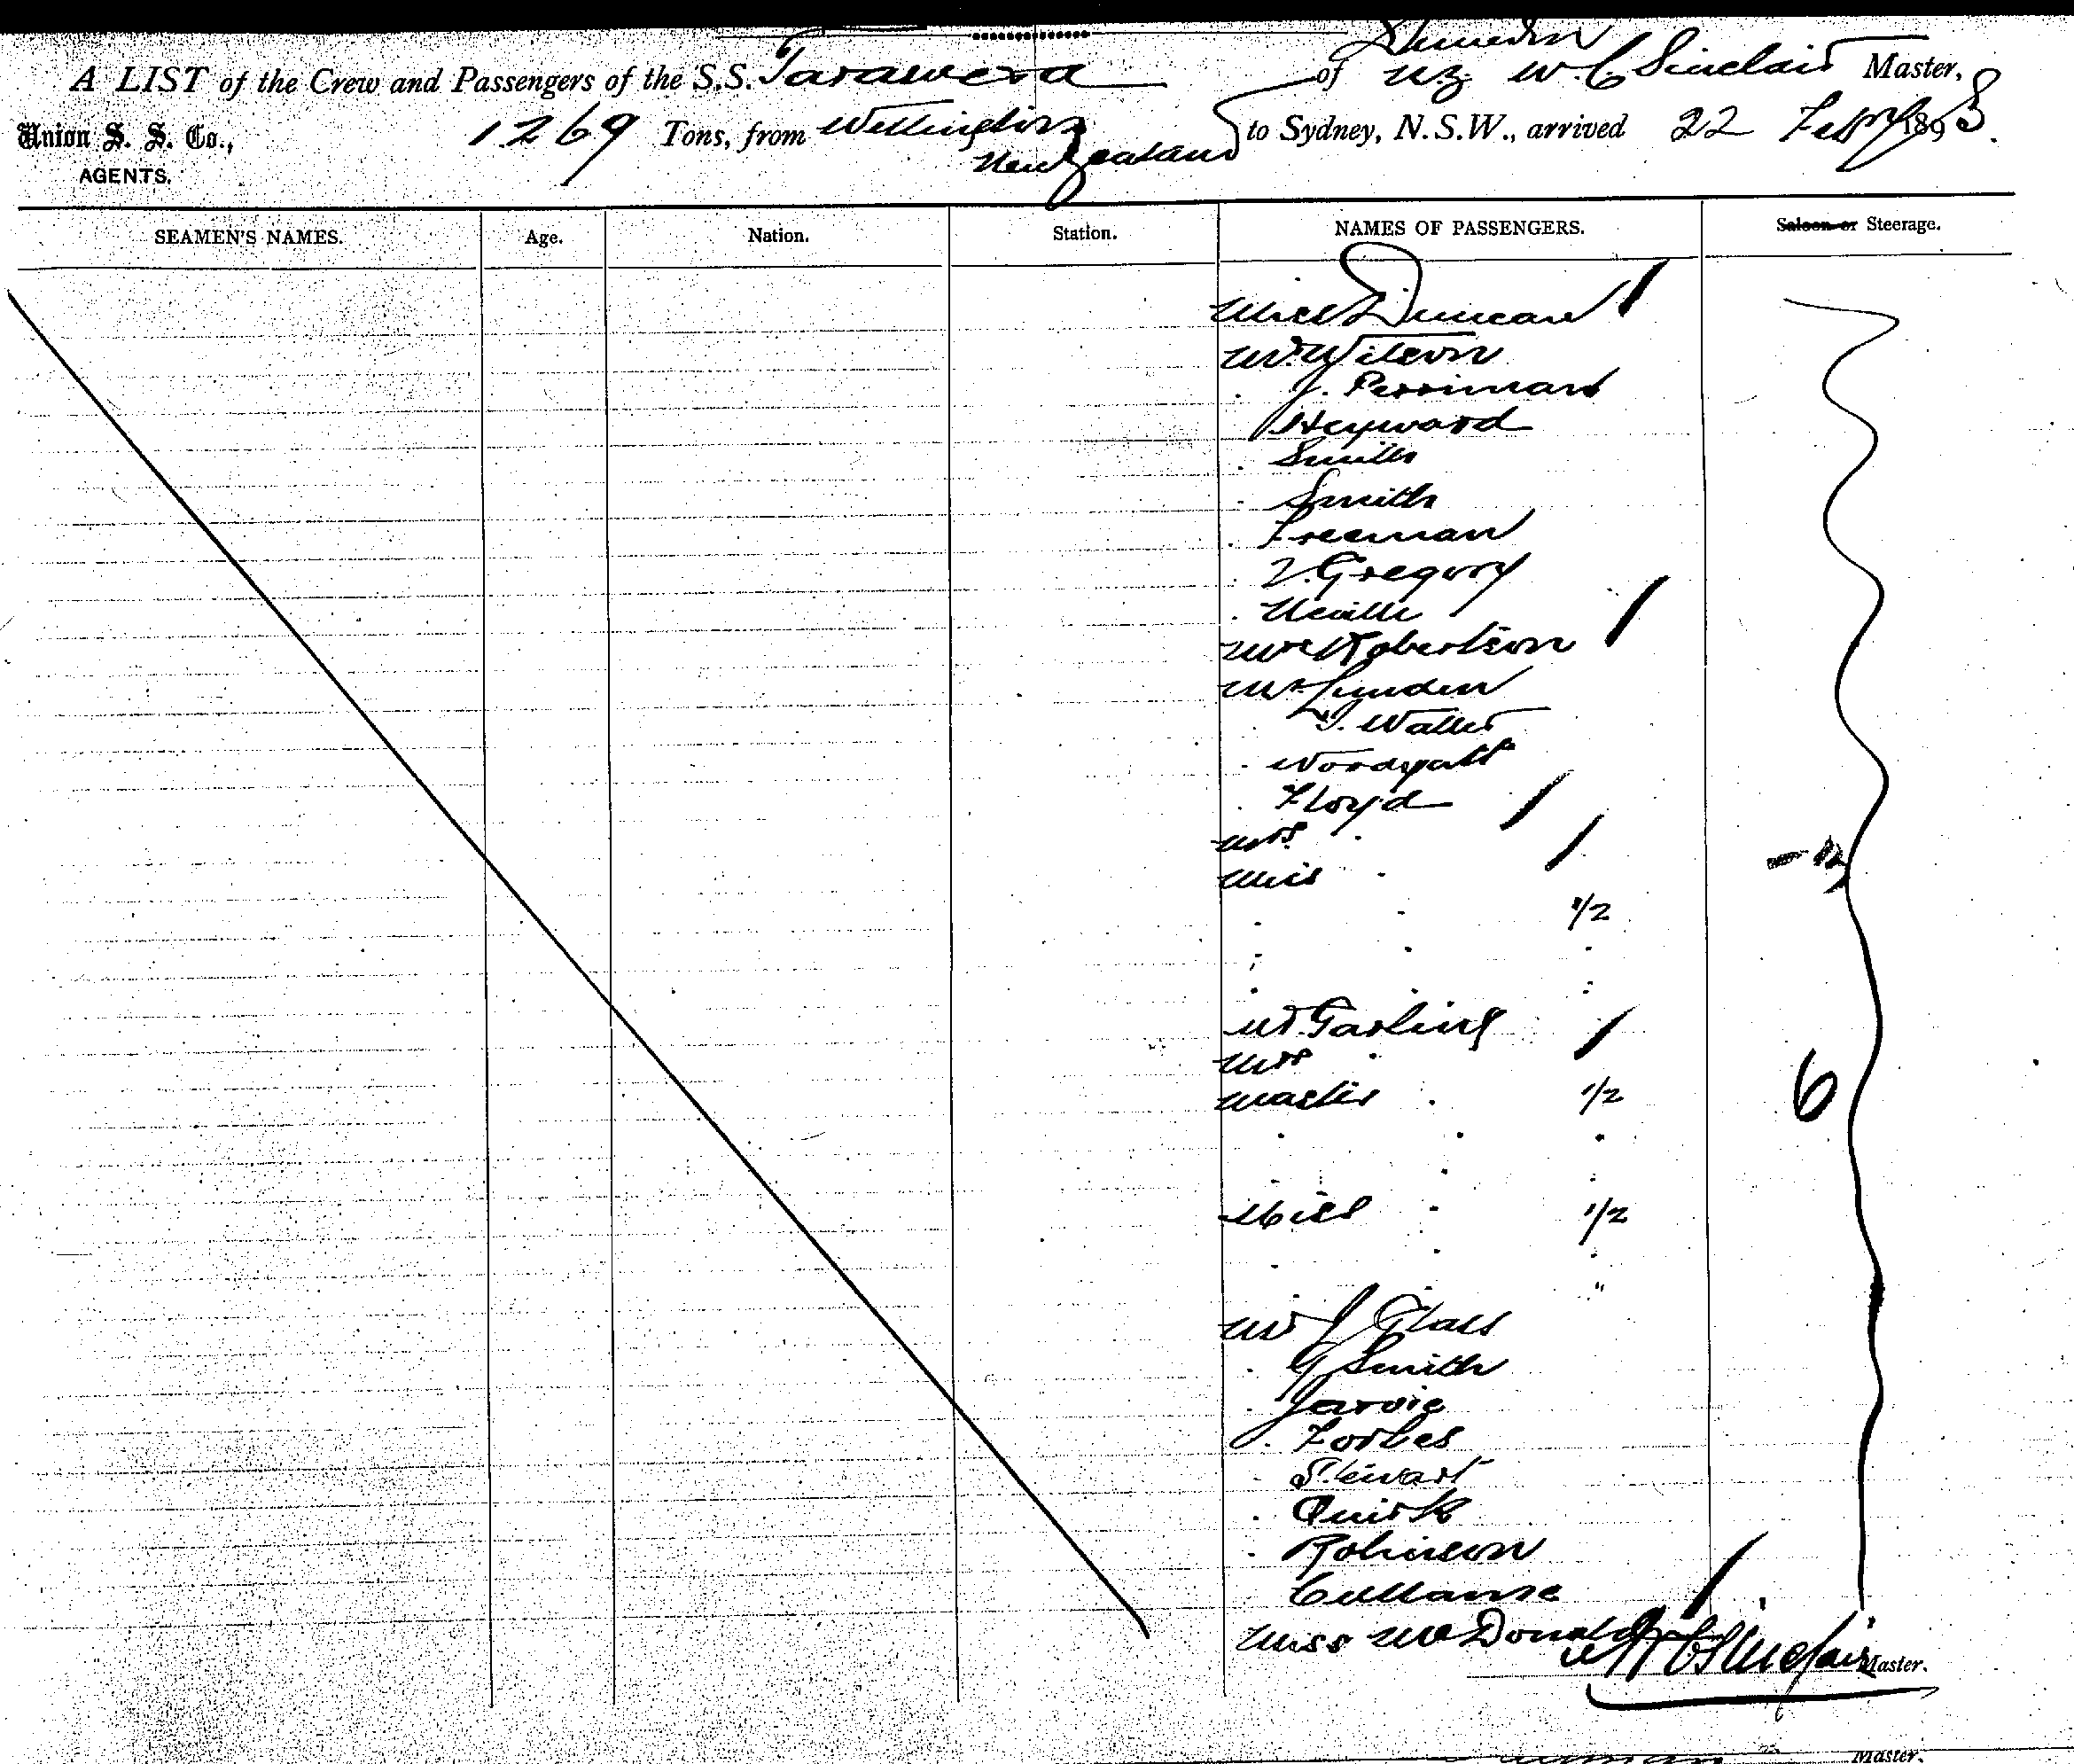 Dunedin
A LIST of the Crew and Passengers of the S.S. Tarawera of NZ W. C Sinclair Master,
Union S. S. Co., 1269 Tons, from Wellington New Zealand to Sydney, N.S.W., arrived 22 Feby 1898.
AGENTS.
SEAMEN'S NAMES. Age. Nation. Station. NAMES OF PASSENGERS. Saloon or Steerage.
Miss Duncan /
Mr Wilson
. J. Perriman
. Heyward
. Smith
. Smith
. Freeman
. V. Gregory
. Neville
Mrs Robertson /
Mr Lynden
. T. Waller
. Woodyatt
. Floyd /
Mrs . /
Miss . /
. . 1/2
. . .
. . .
Mr Garling /
Mrs .
Master . 1/2 6
. . .
. .
Miss . 1/2
. . .
. . "
Mr J Glass
. G Smith
. Jarvie
. Forbes
. Stewart
. Quirk
. Robinson
Cullanse
Miss McDonald / W C Sinclair Master.
Master.